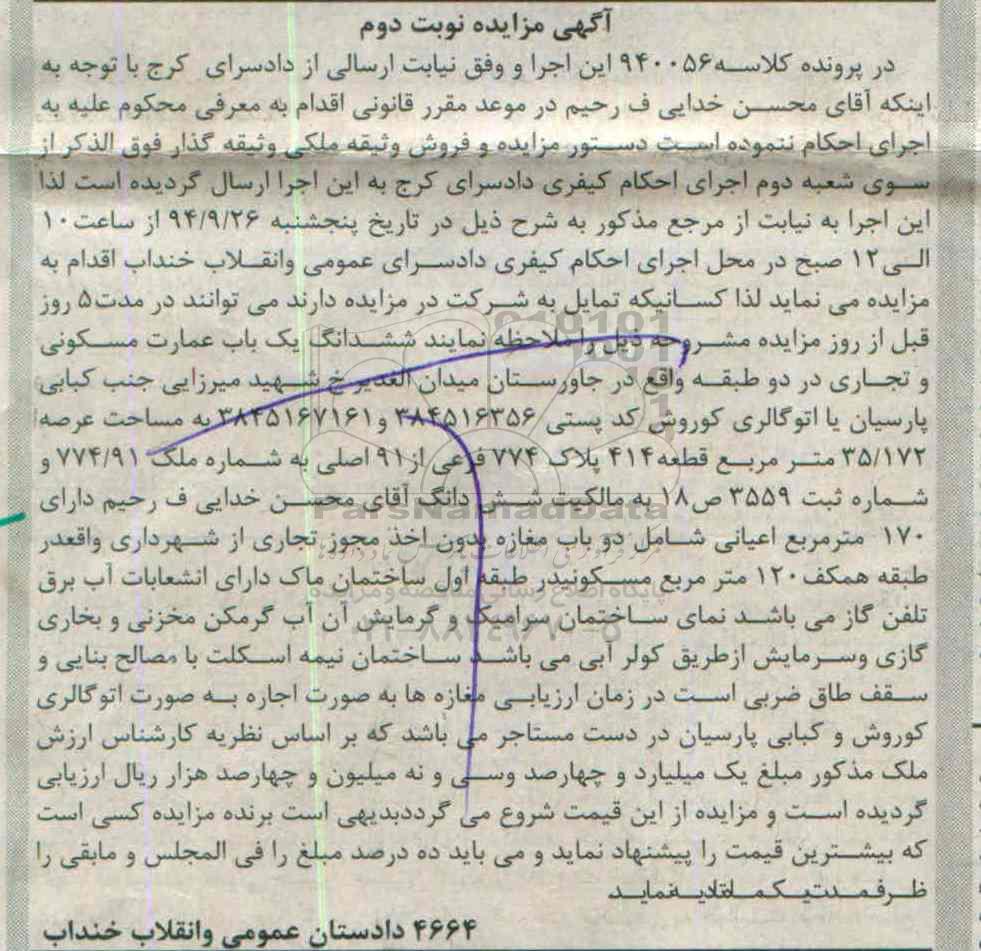 آگهی مزایده نوبت دوم
در پرونده کلاسه۹۴۰۰۵۶ این اجرا و وفق نیابت ارسالی از دادسرای کرج با توجه به
اینکه آقای محسن خدایی ف رحیم در موعد مقرر قانونی اقدام به معرفی محکوم علیه به
اجرای احکام ننموده است دستور مزایده و فروش وثیقه ملکی وثیقه گذار فوق الذکر از
سوی شعبه دوم اجرای احکام کیفری دادسرای کرج به این اجرا ارسال گردیده است لذا
این اجرا به نیابت از مرجع مذکور به شرح ذیل در تاریخ پنجشنبه ۹۴/۹/۲۶ از ساعت۱۰
الی۱۲ صبح در محل اجرای احکام کیفری دادسرای عمومی وانقلاب خنداب اقدام به
مزایده می نماید لذا کسانیکه تمایل به شرکت در مزایده دارند می توانند در مدت۵ روز
قبل از روز مزایده مشروحه ذیل را ملاحظه نمایند ششدانگ یک باب عمارت مسکونی
و تجاری در دو طبقه واقع در جاورستان میدان الغدیر خ شهید میرزایی جنب کبابی
پارسیان یا اتوگالری کوروش کد پستی ۳۸۴۵۱۶۳۵۶ و۳۸۴۵۱۶۷۱۶۱ به مساحت عرصه
۳۵/۱۷۲ متر مربع قطعه۴۱۴ پلاک ۷۷۴ فرعی از۹۱ اصلی به شماره ملک ۷۷۴/۹۱ و
شماره ثبت ۳۵۵۹ ص۱۸ به مالکیت شش دانگ آقای محسن خدایی ف رحیم دارای
۱۷۰ مترمربع اعیانی شامل دو باب مغازه بدون اخذ مجوز تجاری از شهرداری واقعدر
طبقه همکف۱۲۰ متر مربع مسکونیدر طبقه اول ساختمان ماک دارای انشعابات آب برق
تلفن گاز می باشد نمای ساختمان سرامیک و گرمایش آن آب گرمکن مخزنی و بخاری
گازی وسرمایش ازطریق کولر آبی می باشد ساختمان نیمه اسکلت با مصالح بنایی و
سقف طاق ضربی است در زمان ارزیابی مغازه ها به صورت اجاره به صورت اتوگالری
کوروش و کبابی پارسیان در دست مستاجر می باشد که بر اساس نظریه کارشناس ارزش
ملک مذکور مبلغ یک میلیارد و چهارصد وسی و نه میلیون و چهارصد هزار ریال ارزیابی
گردیده است و مزایده از این قیمت شروع می گرددبدیهی است برنده مزایده کسی است
که بیشترین قیمت را پیشنهاد نماید و می باید ده درصد مبلغ را فی المجلس و مابقی را
ظرفمدتیکماهتادیهنماید.
۴۶۶۴ دادستان عمومی وانقلاب خنداب
ParsNamadData